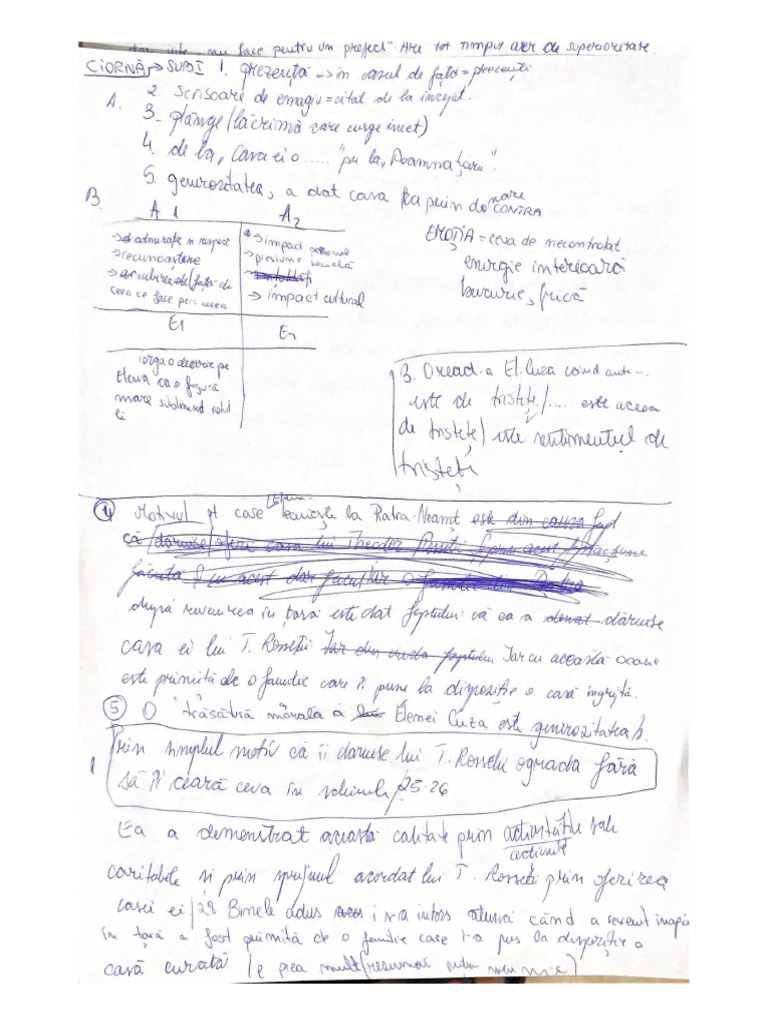 nu face pentru un prefect". Are tot timpul aer de superioritate.
CIORNĂ → SUB I 1. prezență => în casul de față = prezență
A. 2. scrisoare de = citat de la început..
3. plânge (lacrimă care curge încet)
4. de la, Cara ei o ..... "pe la, Doamna
5. generozitatea, a dat casa fka prin do nare
CONTRA
B.
A 1 A2
admirație n respect
→ recunoaștere
față de
ceea ce face
→ impact personal
→ presiune socială
→ impact cultural
E1 E2
Iorga o descrie pe
Elena ca o figură
mare subliniind rolul
ei
EMOȚIA = ceva de necontrolat
energie interioară
bucurie, frică
3. El. Cuza când
este de tristețe/..... este aceea
de tristețe/ este sentimentul de
tristețe
① Motivul pt care Elena la Piatra-Neamț este din cauza fapt
că dăruise/oferi casa lui Theodor Rosetti
după revenirea în țară este dat faptului că ea a donat dăruise
casa ei lui T. Rosetti. Iar din cauza faptului Iar cu această ocazie
este primită de o familie care îi pune la dispoziție o casă îngrijită.
⑤ O trăsătură morală a lui Elenei Cuza este generozitatea
Prin simplul motiv că îi dăruise lui T. Rosetti ograda fără
să îi ceară ceva în schimb 25-26
Ea a demonstrat această calitate prin activitățile sale
caritabile și prin sprijinul acordat lui T. Rosetti prin oferirea
casei ei/28 Binele adus i s-a întors atunci când a revenit înapoi
în țară a fost primită de o familie care i-a pus la dispoziție o
casă curată (e prea mult/rezumat